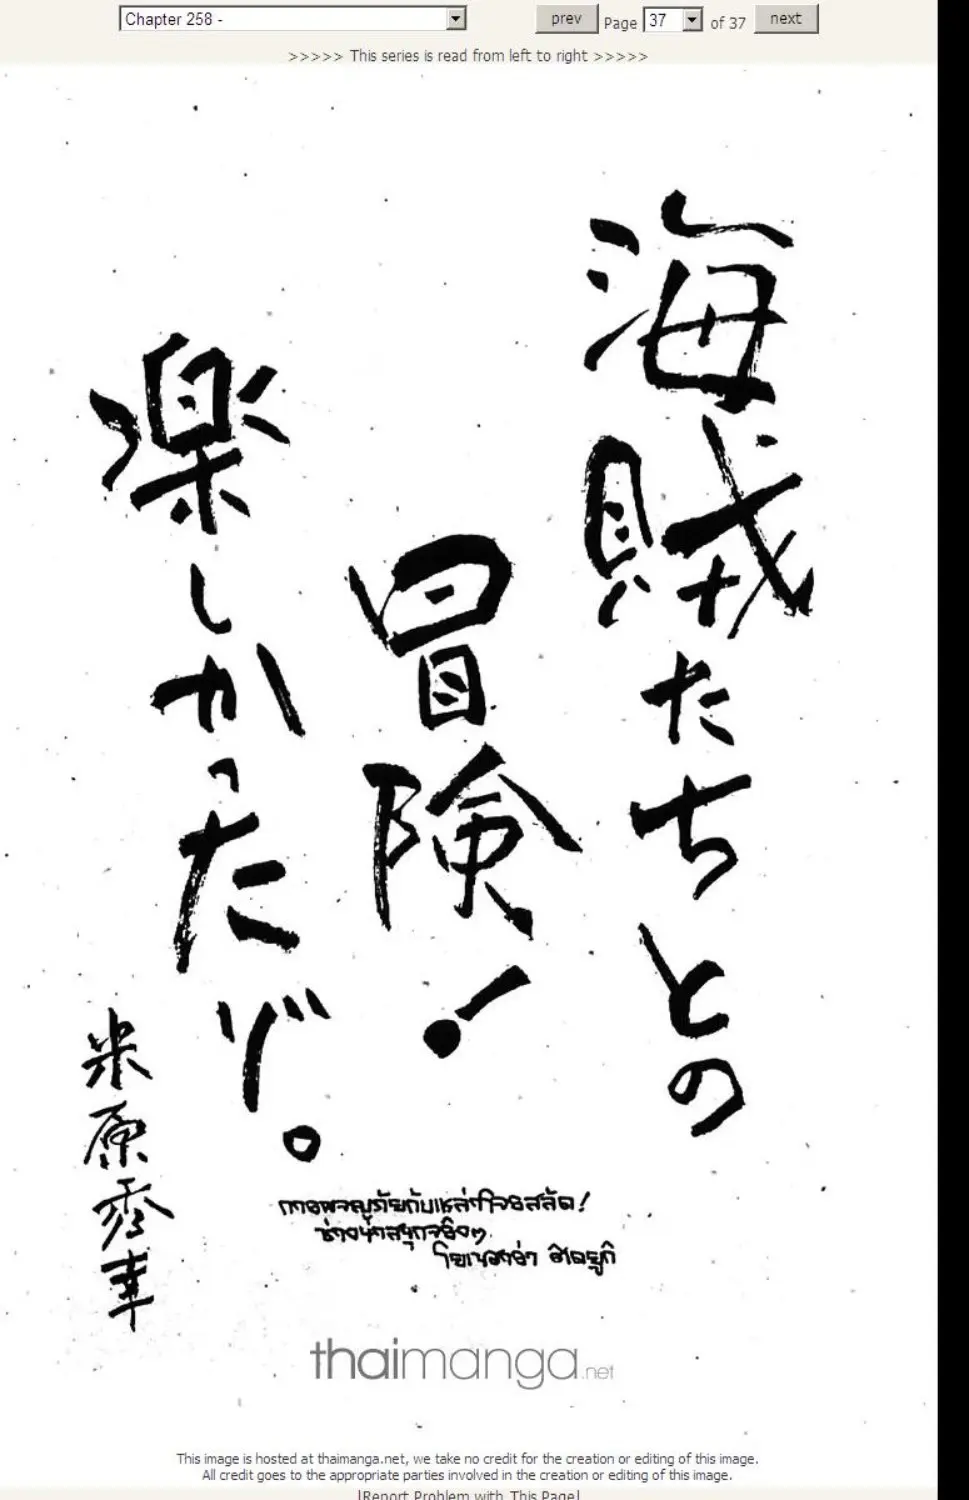 Chapter 258 -
prev Page 37 of 37 next
>>>>> This series is read from left to right >>>>>
海賊たちとの
冒険!
楽しかったゾ。
米原秀幸
การผจญภัยกับเหล่าโจรสลัด!
ช่างน่าสนุกจริงๆ
โยเนฮาร่า ฮิเดยูกิ
thaimanga.net
This image is hosted at thaimanga.net, we take no credit for the creation or editing of this image.
All credit goes to the appropriate parties involved in the creation or editing of this image.
[Report Problem with This Page]